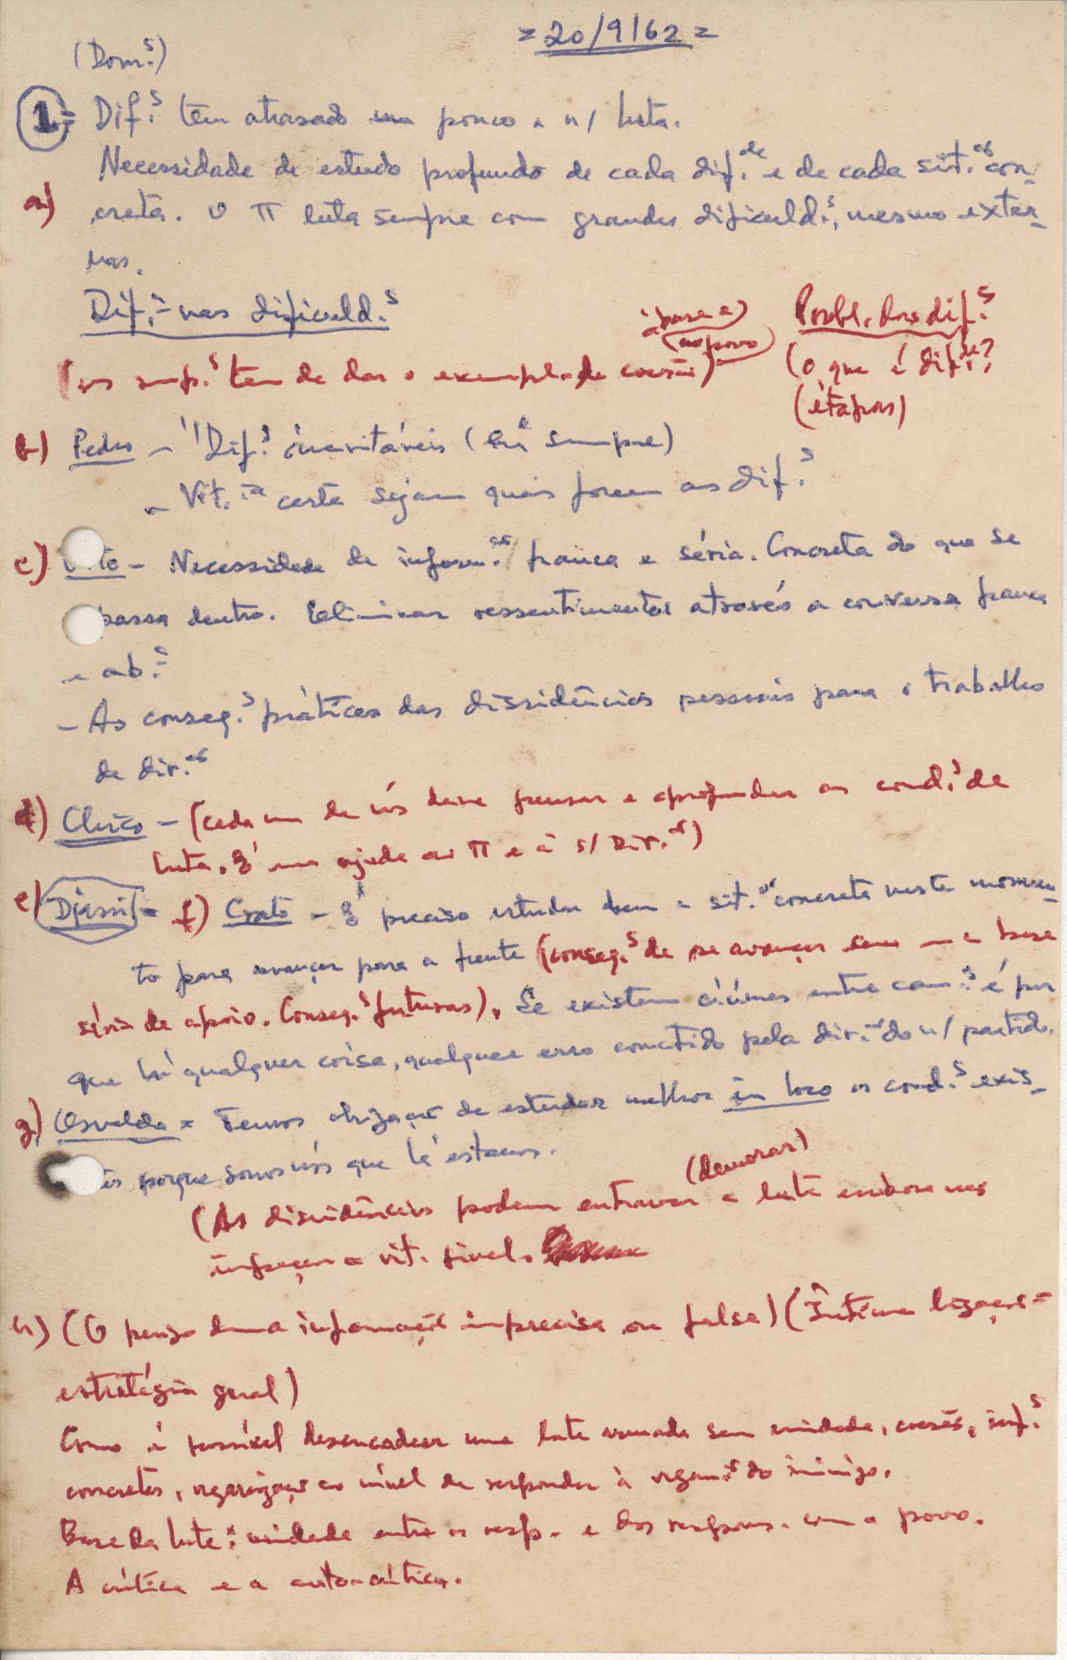 = 20/9/62 =
(Dom.s)
1- Dif.s têm atrasado um pouco a n/ luta.
Necessidade de estudo profundo de cada dif.de e de cada sit.es con-
a) creta. O π luta sempre com grandes dificuld.s, mesmo exter-
nas.
Dif.s nas dificuld.s
Probl. das dif.s
(base e)
(ao povo)
(os resp.s têm de dar o exemplo de coesão)
(O que é dif.de?
(étapas)
b) Pedro - Dif.s inevitáveis (há sempre)
- Vit.ia certa sejam quais forem as dif.s
c) - Necessidade de inform.es franca e séria. Concreta do que se
passa dentro. Eliminar ressentimentos através a conversa franca
e ab.
- As conseq.s práticas das dissidências pessoais para o trabalho
de dir.es
d) Chico - (cada um de nós deve pensar e aprofundar as cond.s de
luta. É uma ajuda ao π e à s/ Dir.)
e) Djassi = f) - É preciso estudar bem a sit. concreta neste momen-
to para avançar para a frente (conseq.s de se avançar sem uma base
séria de apoio. Conseq.s futuras). Se existem ciúmes entre cam.s é por
que há qualquer coisa, qualquer erro cometido pela dir. do n/ partido.
g) Osvaldo = Temos obrigação de estudar melhor in loco as cond.s exis-
porque somos nós que lá estamos.
(demorar)
(As dissidências podem entravar a luta embora não
impeçam a vit. final.
h) (O perigo duma informação imprecisa ou falsa) (Íntima ligação =
estratégia geral)
Como é possível desencadear uma luta armada sem unidade, coesão, inf.s
concretas, organização ao nível de responder à organiz. do inimigo.
Base da luta: unidade entre os resp. e dos respons. com o povo.
A crítica e a auto-crítica.